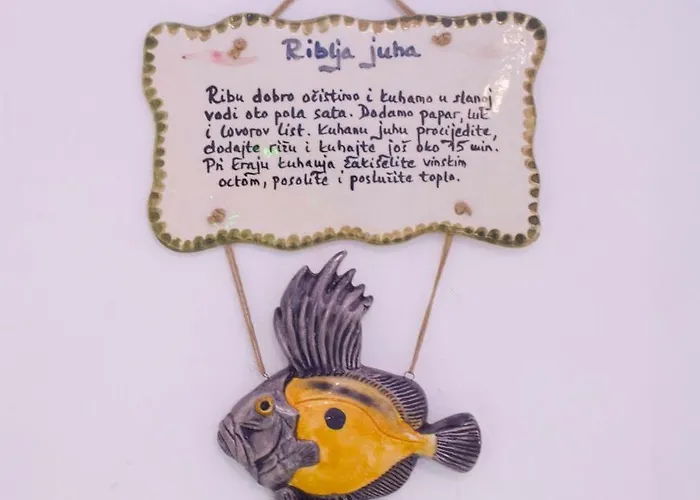 Riblja juha
Ribu dobro očistimo i kuhamo u slanoj
vodi oko pola sata. Dodamo papar, luk
i lovorov list. Kuhanu juhu procijedite,
dodajte rižu i kuhajte još oko 15 min.
Pri kraju kuhanja zakiselite vinskim
octom, posolite i poslužite toplo.